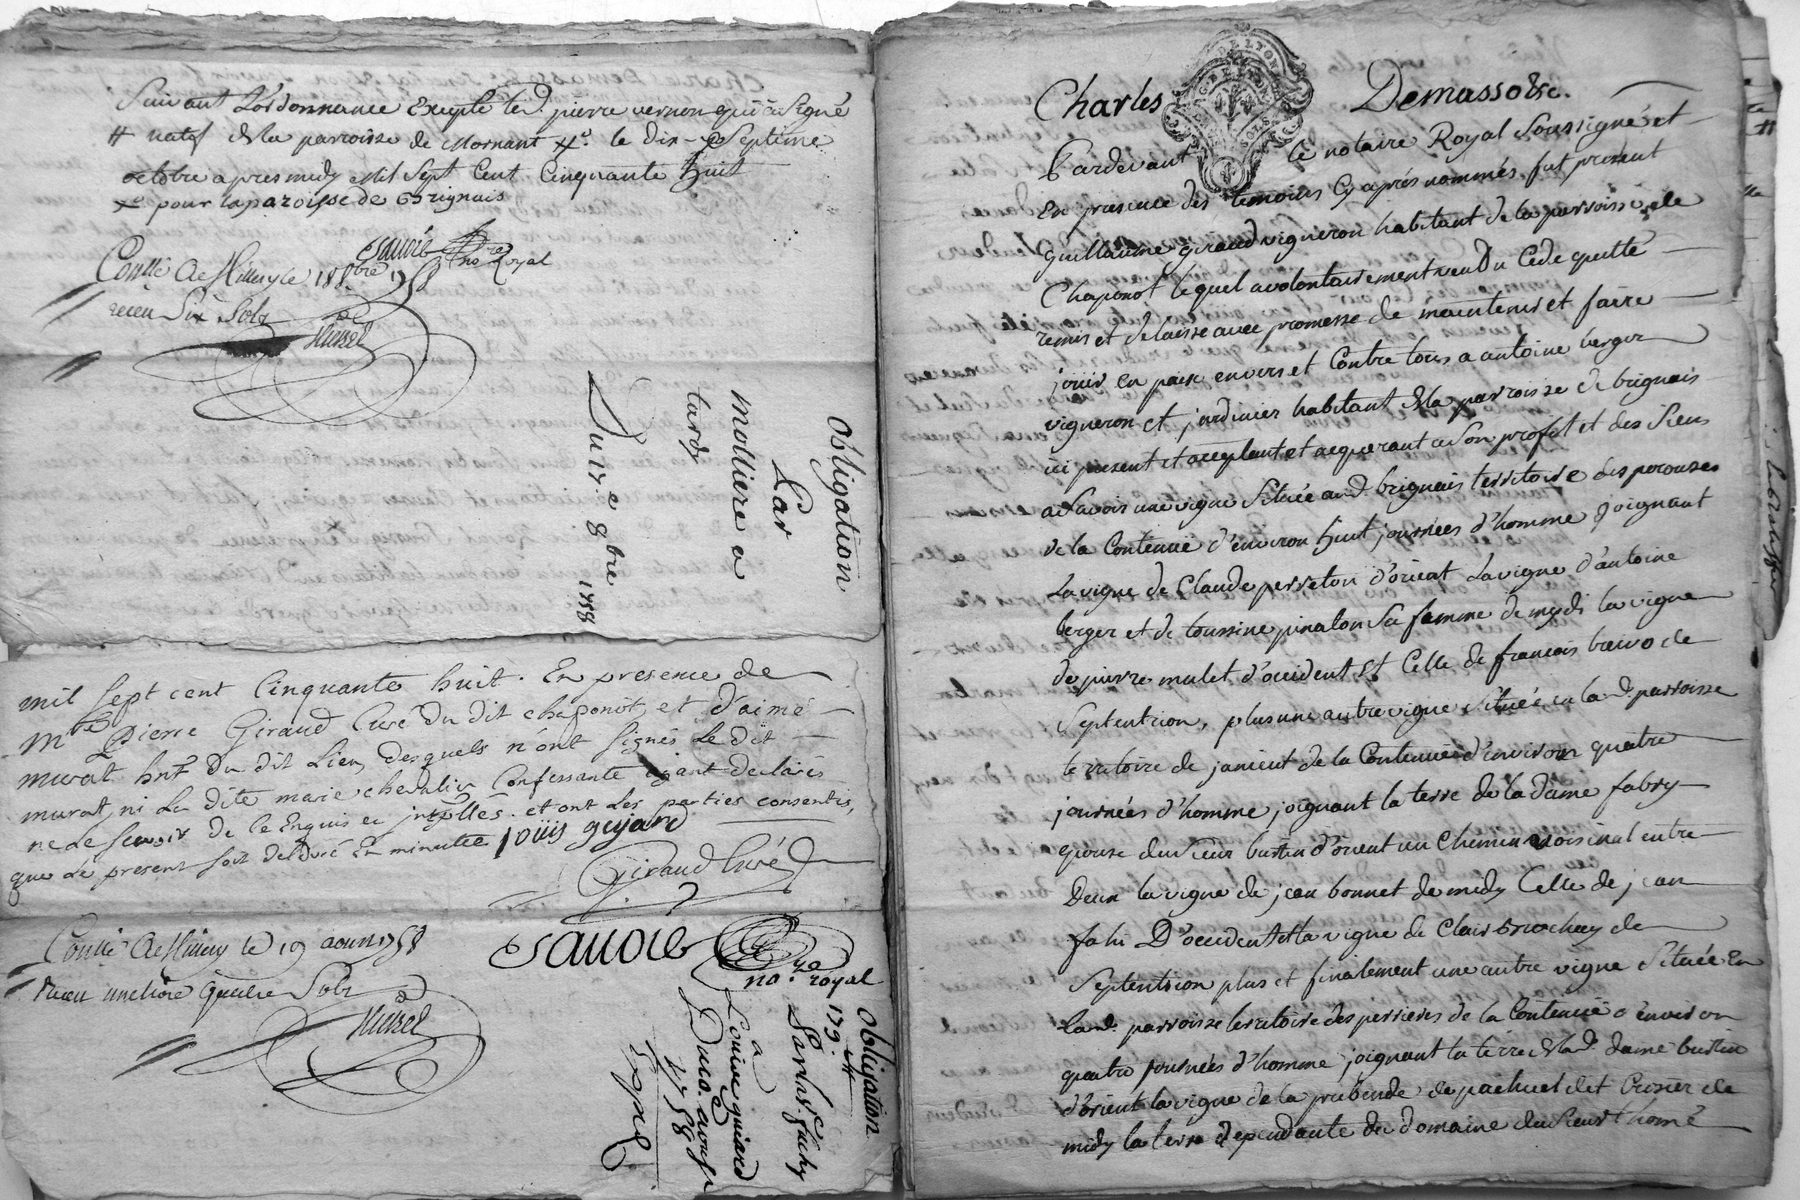 Suivant L'ordonnance Excepté led. pierre vernon qui a signé
# natif de la parroisse de Mornant le dix-Septieme
octobre apres midy Mil Sept Cent Cinquante huit
pour la paroisse de Grignais
esauoie no.re Royal
Conllé A Millery le 18 8bre 1758
receu Six Sols
Obligation
Par
molliere a
tardy
Du 17.e 8bre 1758
mil sept cent Cinquante huit. En presence de
Mre Pierre Giraud Curé du dit chaponot et d'aimé
murat habt du dit Lieu, desquels n'ont signés Le dit
murat, ni La dite marie chevalier Confessante ayant declarés
ne le scavoir de ce Enquis et intpellés. et ont Les parties consenties,
que Le present soit delivré En minutte loüis gujard
Giraud Curé
Conllé A Millery le 19 aoust 1758
Receu une livre quatre Sols
esauoie
no.re royal
Obligation
179.#
a
Louise guiard
Du 10. aoust
1758
Charles Demassoste.
Pardevant le notaire Royal Soussigné et
En presence des temoins Cy aprés nommés, fut present
guillaume giraud vigneron habitant de la parroisse de
Chaponot lequel a volontairement vendu Cede quitté
remis et delaissé avec promesse de maintenir et faire
joüir en paix envers et Contre tous a antoine berger
vigneron et jardinier habitant de la parroisse de brignais
ici present et acceptant et acquerant a son profit et des siens
a savoir une vigne Située aud. brignais territoire des perouses
de la Contenüe d'environ huit journées d'homme joignant
La vigne de Claude perreton d'orient La vigne d'antoine
berger et de toussine pinaton Sa femme de mydi la vigne
de pierre mulet d'occident et Celle de francois bravo de
Septentrion, plus une autre vigne Située en lad. parroisse
territoire de janient de la Contenüe d'environ quatre
journées d'homme joignant la terre de la dame fabry
epouse du Sieur bustin d'orient un Chemin voisinal entre
Deux la vigne de jean bonnet de midy Celle de jean
fahi D'occident et la vigne de Clair brochay de
Septentrion plus et finalement une autre vigne Située En
lad. parroisse territoire des perrieres de la Contenüe d'environ
quatre journées d'homme joignant la terre de lad. dame bustin
d'orient la vigne de la prebende de pachuel et Crosier de
midy la terre dependante du domaine du Sieur thomé